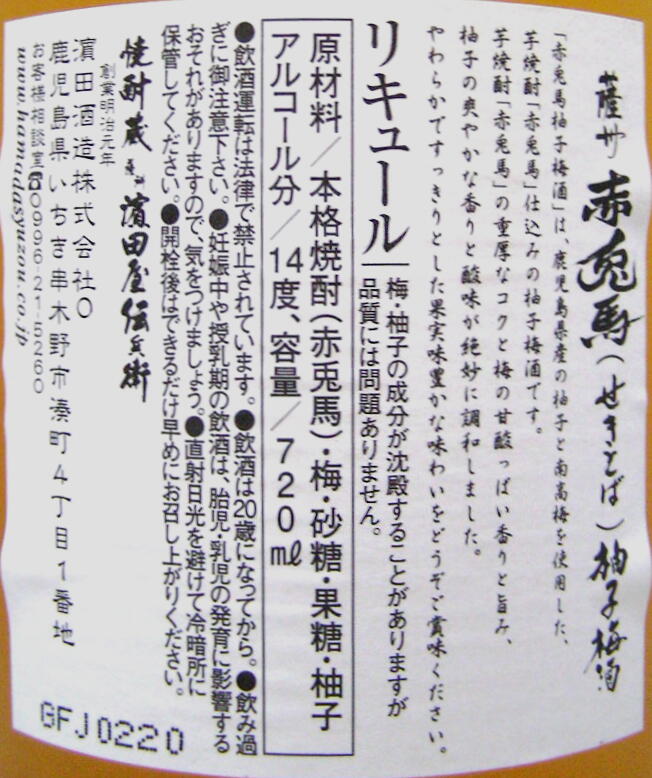 薩州 赤兎馬(せきとば)柚子梅酒
「赤兎馬柚子梅酒」は、鹿児島県産の柚子と南高梅を使用した、
芋焼酎「赤兎馬」仕込みの柚子梅酒です。
芋焼酎「赤兎馬」の重厚なコクと梅の甘酸っぱい香りと旨み、
柚子の爽やかな香りと酸味が絶妙に調和しました。
やわらかですっきりとした果実味豊かな味わいをどうぞご賞味ください。
リキュール
梅・柚子の成分が沈殿することがありますが
品質には問題ありません。
原材料/本格焼酎(赤兎馬)・梅・砂糖・果糖・柚子
アルコール分/14度、容量/720㎖
●飲酒運転は法律で禁止されています。●飲酒は20歳になってから。●飲み過
ぎに御注意下さい。●妊娠中や授乳期の飲酒は、胎児・乳児の発育に影響する
おそれがありますので、気をつけましょう。●直射日光を避けて冷暗所に
保管してください。●開栓後はできるだけ早めにお召し上がりください。
焼酎蔵 薩州 濵田屋伝兵衛
創業明治元年
濵田酒造株式会社O
鹿児島県いちき串木野市湊町4丁目1番地
お客様相談室☎0996-21-5260
www.hamadasyuzou.co.jp
GFJ0220